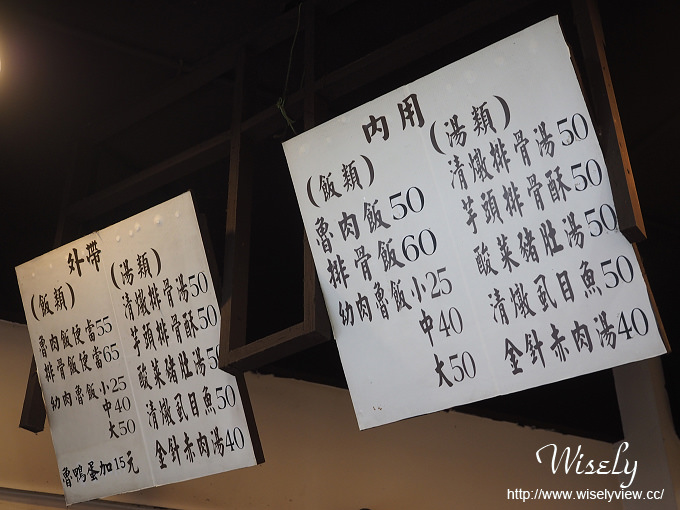 外帶
(飯類)
魯肉飯便當55
排骨飯便當65
幼肉魯飯小25
中40
大50
魯鴨蛋加15元
(湯類)
清燉排骨湯50
芋頭排骨酥50
酸菜豬肚湯50
清燉虱目魚50
金針赤肉湯40
內用
(飯類)
魯肉飯50
排骨飯60
幼肉魯飯小25
中40
大50
(湯類)
清燉排骨湯50
芋頭排骨酥50
酸菜豬肚湯50
清燉虱目魚50
金針赤肉湯40
Wisely
http://www.wiselyview.cc/